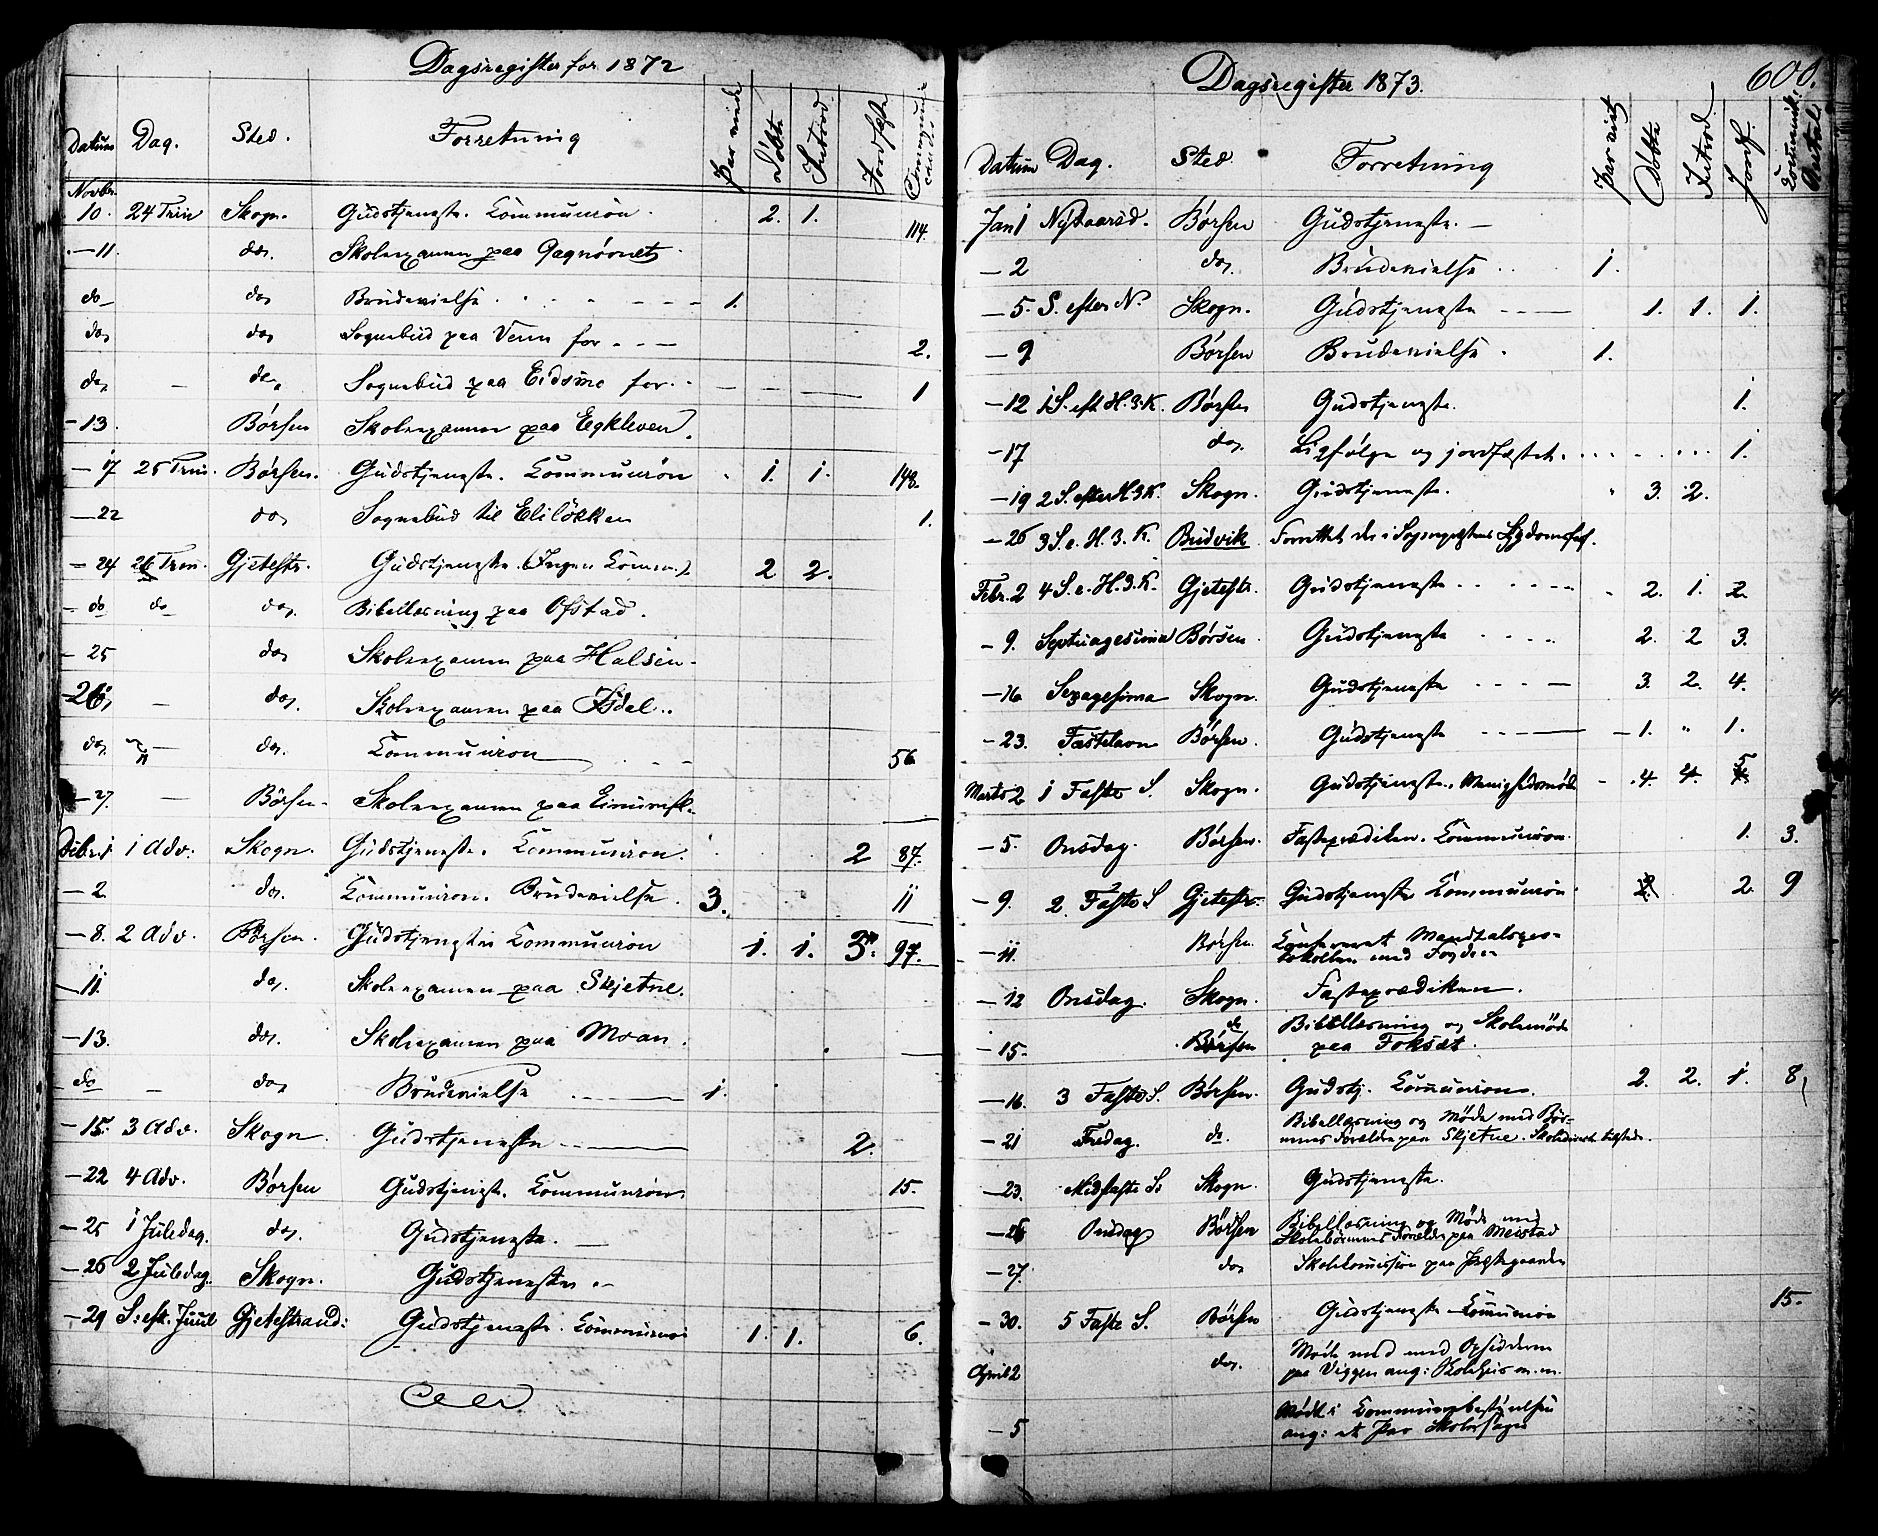 Dagsregister for 1872
Datum Dag. Sted. Forretning Par viede Døbte Introd Jordfæste Communicanter
Novbr.
10. 24 Trin Skogn. Gudstjeneste. Communion. 2. 1. 114.
- 11. do. Skoleexamen paa
do - do, Brudevielse - - - 1.
do, do, Sognebud paa Venn for - - - 2.
do, - do, Sognebud paa Eidsmo for - - - 1
- 13. Børsen Skoleexamen paa Eggkleven.
- 17 25 Trin. Børsen. Gudstjeneste. Communion 1. 1. 148.
- 22 do, Sognebud til Eliløkken 1.
- 24 26 Trin. Gjetestr. Gudstjeneste. (Ingen Comm.) 2 2.
- do do do, Bibellæsning paa Ofstad.
- 25 do, Skoleexamen paa Halsen -
- 26, - do, Skoleexamen paa
do, " - do. Communion 56
- 27. - Børsen - Skoleexamen paa
Dcbr. 1 1 Adv. Skogn. Gudstjeneste. Communion. 2 87.
- 2. do. Communion. Brudevielse. 3. 11
- 8. 2 Adv. Børsen. Gudstjeneste Communion 1. 1. 3. 97.
- 11. do. Skoleexamen paa Skjetne.
- 13. do. Skoleexamen paa Moan.
do - do, Brudevielse - - - 1.
- 15. 3 Adv. Skogn. Gudstjeneste - - - 2.
- 22 4 Adv. Børsen Gudstjeneste. Communion. 15.
- 25 1 Juledag. do, Gudstjeneste. -
- 26 2 Juledag. Skogn. Gudstjeneste. -
- 29 S. eft. Juul Gjetestrand: Gudstjeneste. Communion 1. 1. 6.
Dagsregister 1873. 600.
Datum Dag. Sted. Forretning Par viet Døbte Introd. Jordf. Communik. Antal
Jan 1 Nytaarsd. Børsen Gudstjeneste. -
- 2 do, Brudevielse 1.
- 5. S. efter N. Skogn. Gudstjeneste - - - 1. 1. 1.
- 9 Børsen Brudevielse. 1.
- 12 1 S. eft H. 3. K. Børsen Gudstjeneste. 1.
- 17 do, Ligfølge og jordfæstet. 1.
- 19 2 S. efter H. 3 K. Skogn. Gudstjeneste. " 3. 2.
- 26 3 S. e. H. 3. K. Budvik Forrettet der i Sognepræstens Sygdomsfof.
Febr. 2 4 S. e. H. 3. K. Gjetestr. Gudstjeneste - - - 2. 1. 2.
- 9. Septuagesima Børsen Gudstjeneste - - - 2. 2 3.
- 16 Sexagesima Skogn. Gudstjeneste - - - 3. 2. 4.
- 23. Fastelavn Børsen. Gudstjeneste - - - 1. " 1.
Marts 2 1 Faste S. Skogn. Gudstjeneste. Menighedsmøde - 4. 4. 5
- 5. Onsdag. Børsen. Fasteprædiken. Communion. 1. 3.
- 9. 2. Faste S Gjetestr. Gudstjeneste Communion 2. 2. 9
- 11. Børsen. Confereret Mandtalspro-
tokollen med Fogden
- 12 Onsdag. Skogn. Fasteprædiken.
- 15. do Børsen Bibellæsning og Skolemøde
paa Foksæt.
- 16. 3 Faste S. Børsen. Gudstj. Communion. 2. 2. 1. 8,
- 21 Fredag. do. Bibellæsning og Møde med Bør-
nenes Forældre paa Skjetne. tilstede.
- 23. Midfaste S. Skogn. Gudstjeneste.
- 26 Onsdag Børsen Bibellæsning og Møde med
Skolebørnenes Forældre paa Meistad
- 27. do, Skolekomission paa Præstegaarden
- 30. 5 Faste S. Børsen Gudstjeneste Communion 15.
April 2 do, Møde med med Opsidderne
paa Viggen ang: Skolehuus m. m.
- 5 Mødt i Communebestyrelsen
ang: et Par Skolesager